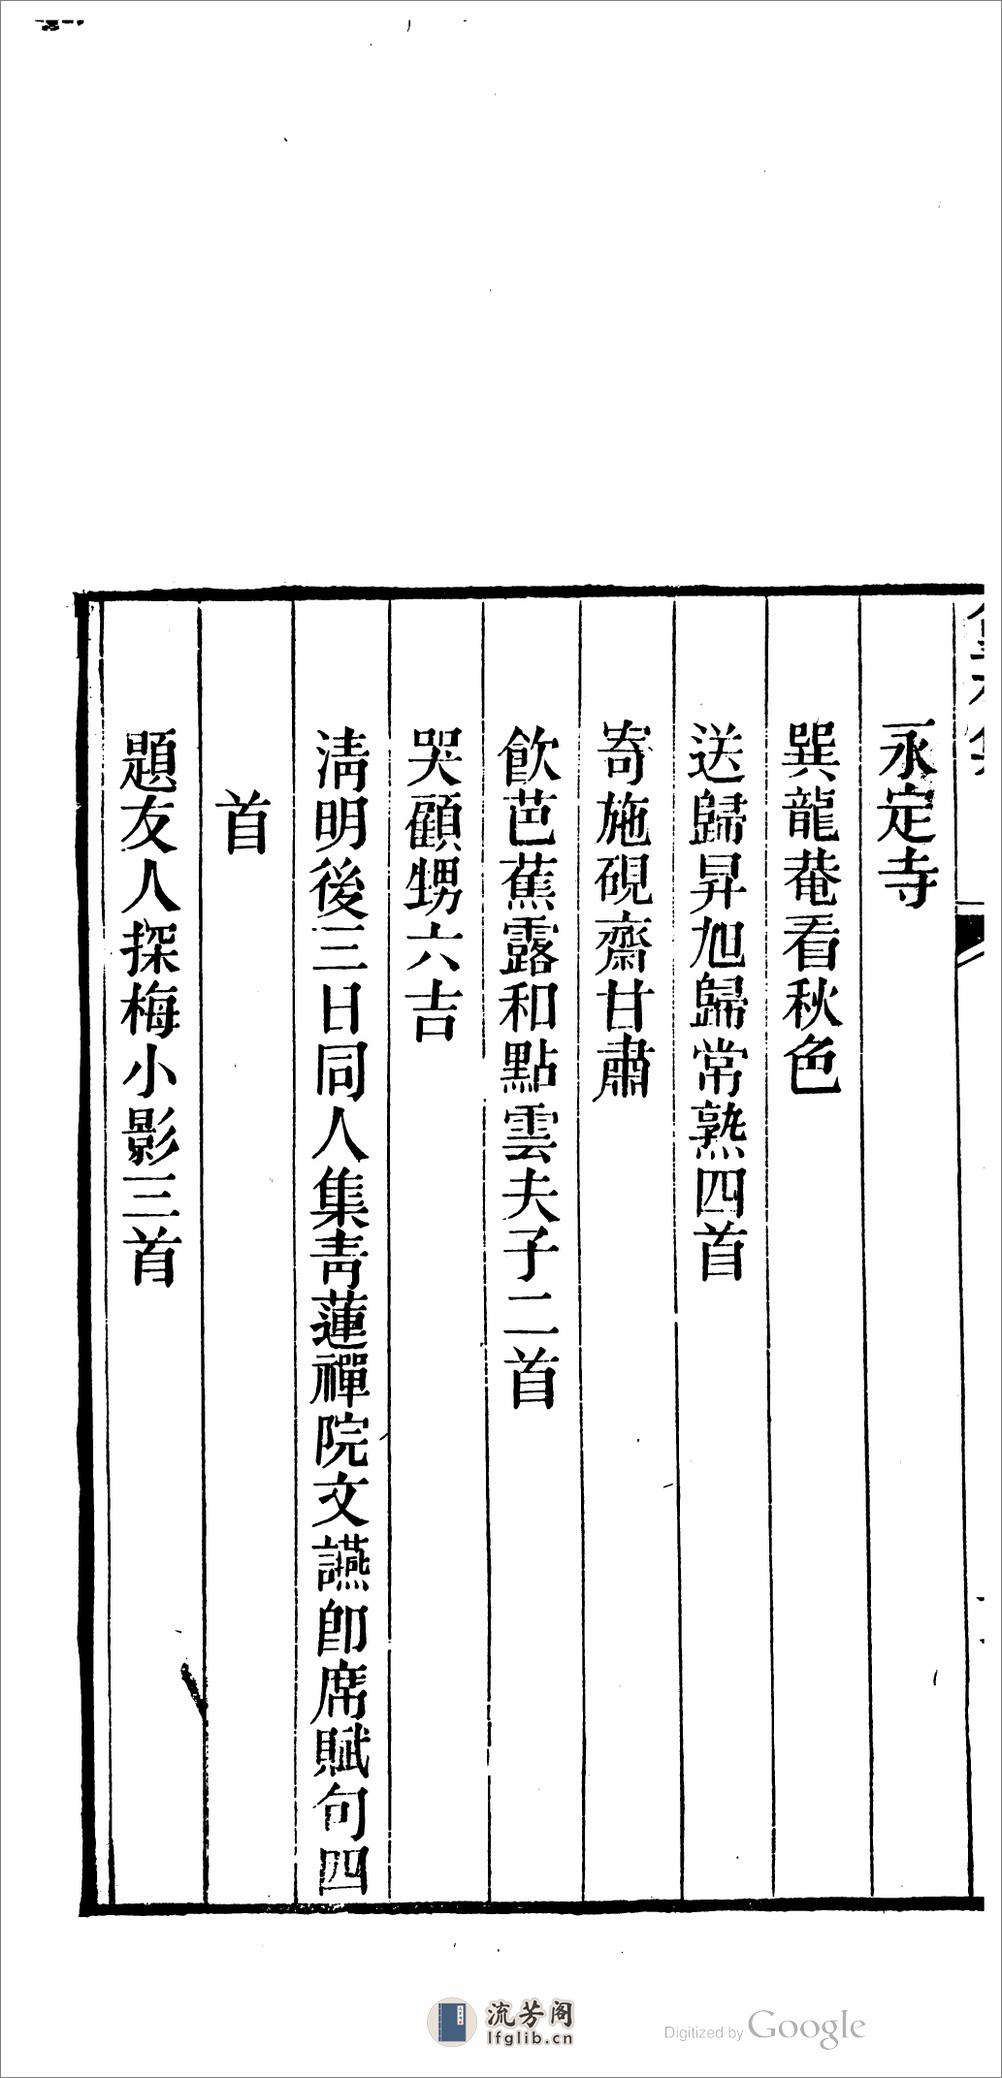 永定寺
巽龍菴看秋色
送歸昇旭歸常熟四首
寄施硯齋甘肅
飲芭蕉露和點雲夫子二首
哭顧甥六吉
淸明後三日同人集靑蓮禪院文讌卽席賦句四
首
題友人探梅小影三首
流芳阁
lfglib.cn
Digitized by Google